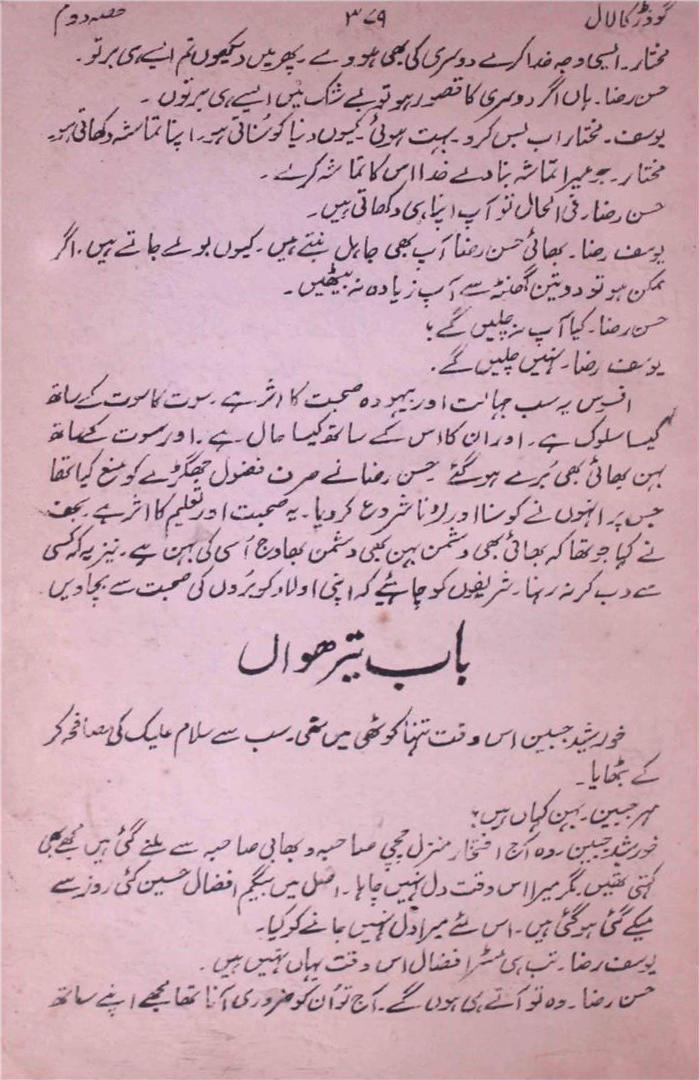 گودڑ کا لال ۳۷۹ حصہ دوم
مختار۔ ایسی وجہ خدا کرے دوسری کی بھی ہووے۔ پھر میں دیکھوں تم ایسے ہی برتو۔
حسن رضا۔ ہاں اگر دوسری کا قصور ہو تو بے شک میں ایسے ہی برتوں۔
یوسف۔ مختار اب بس کرو۔ بہت ہوئی کیوں دنیا کو سُناتی ہو۔ اپنا تماشہ دکھاتی ہو۔
مختار۔ جو میرا تماشہ بنا دے خدا اس کا تماشہ کرے۔
حسن رضا۔ فی الحال تو آپ اپنا ہی دکھاتی ہیں۔
یوسف رضا۔ بھائی حسن رضا آپ بھی جاہل بنتے ہیں۔ کیوں بولے جاتے ہیں۔ اگر
ممکن ہو تو دو تین گھنٹہ سے آپ زیادہ نہ بیٹھیں۔
حسن رضا۔ کیا آپ نہ چلیں گے؟
یوسف رضا۔ نہیں چلیں گے۔
افسوس یہ سب جہالت اور بیہودہ صحبت کا اثر ہے۔ سوت کا سوت کے ساتھ
کیسا سلوک ہے۔ اور ان کا اس کے ساتھ کیسا حال ہے۔ اور سوت کے ساتھ
بہن بھائی بھی بُرے ہو گئے حسن رضا نے صرف فضول جھگڑے کو منع کیا تھا
جس پر انہوں نے کوسنا اور رونا شروع کر دیا۔ یہ صحبت اور تعلیم کا اثر ہے۔ نجف
نے کہا جو تھا کہ بھائی بھی دشمن بہن بھی دشمن بھاوج اُسی کی بہن ہے۔ نیز یہ کہ کسی
سے دب کر نہ رہنا۔ شریفوں کو چاہئیے کہ اپنی اولاد کو بُروں کی صحبت سے بچاویں۔
باب تیرھواں
خورشید جبین اس وقت تنہا کوٹھی میں تھی۔ سب سے سلام علیک کی مصافحہ کر
کے بٹھایا۔
مہر جبین۔ بہن کہاں ہیں؟
خورشید جبین۔ وہ آج افتخار منزل چچی صاحبہ و بھابی صاحبہ سے ملنے گئی ہیں مجھے بھی
کہتی تھیں۔ مگر میرا اس وقت دل نہیں چاہا۔ اصل میں بیگم افضال حسین کئی روز سے
میکے گئی ہوگئی ہیں۔ اس لئے میرا دل نہیں جانے کو کیا۔
یوسف رضا۔ تب ہی مسٹر افضال اس وقت یہاں نہیں ہیں۔
حسن رضا۔ وہ تو آتے ہی ہوں گے۔ آج تو اُن کو ضروری آنا تھا مجھے اپنے ساتھ